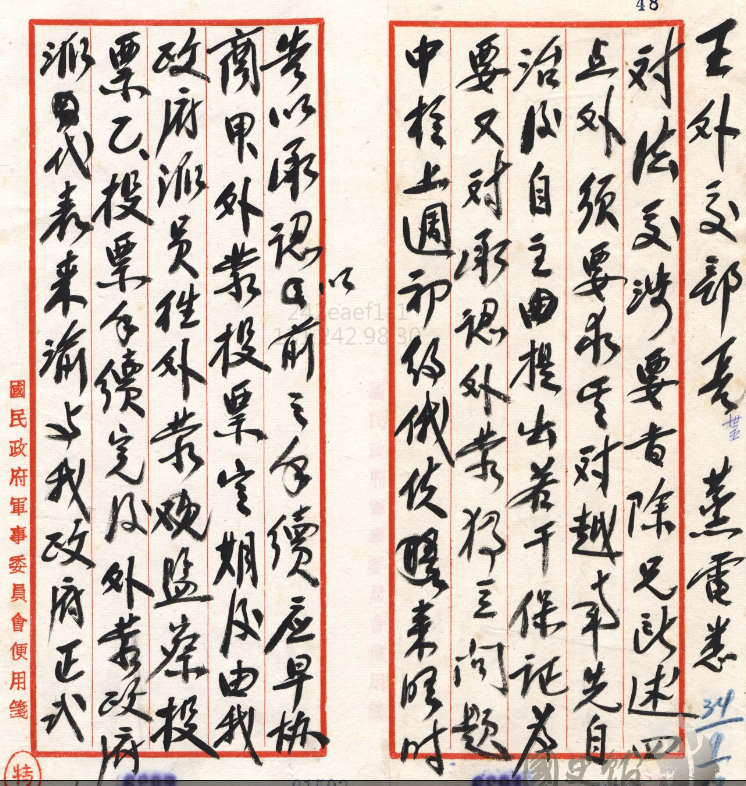 48
王外交部長世 蒸電悉
对法交涉要旨除兄所述四
点外須要求其对越事先自
治後自主並提出若干保証為
要又对承認外蒙獨立問題
中於上週初約俄使
告以承認以前之手續应早協
商甲外蒙投票定期後由我
政府派員往外蒙觀監察投
票乙、投票手續完後外蒙政府
派代表来渝与我政府正式
國民政府軍事委員會便用箋
特
34
9
國史館